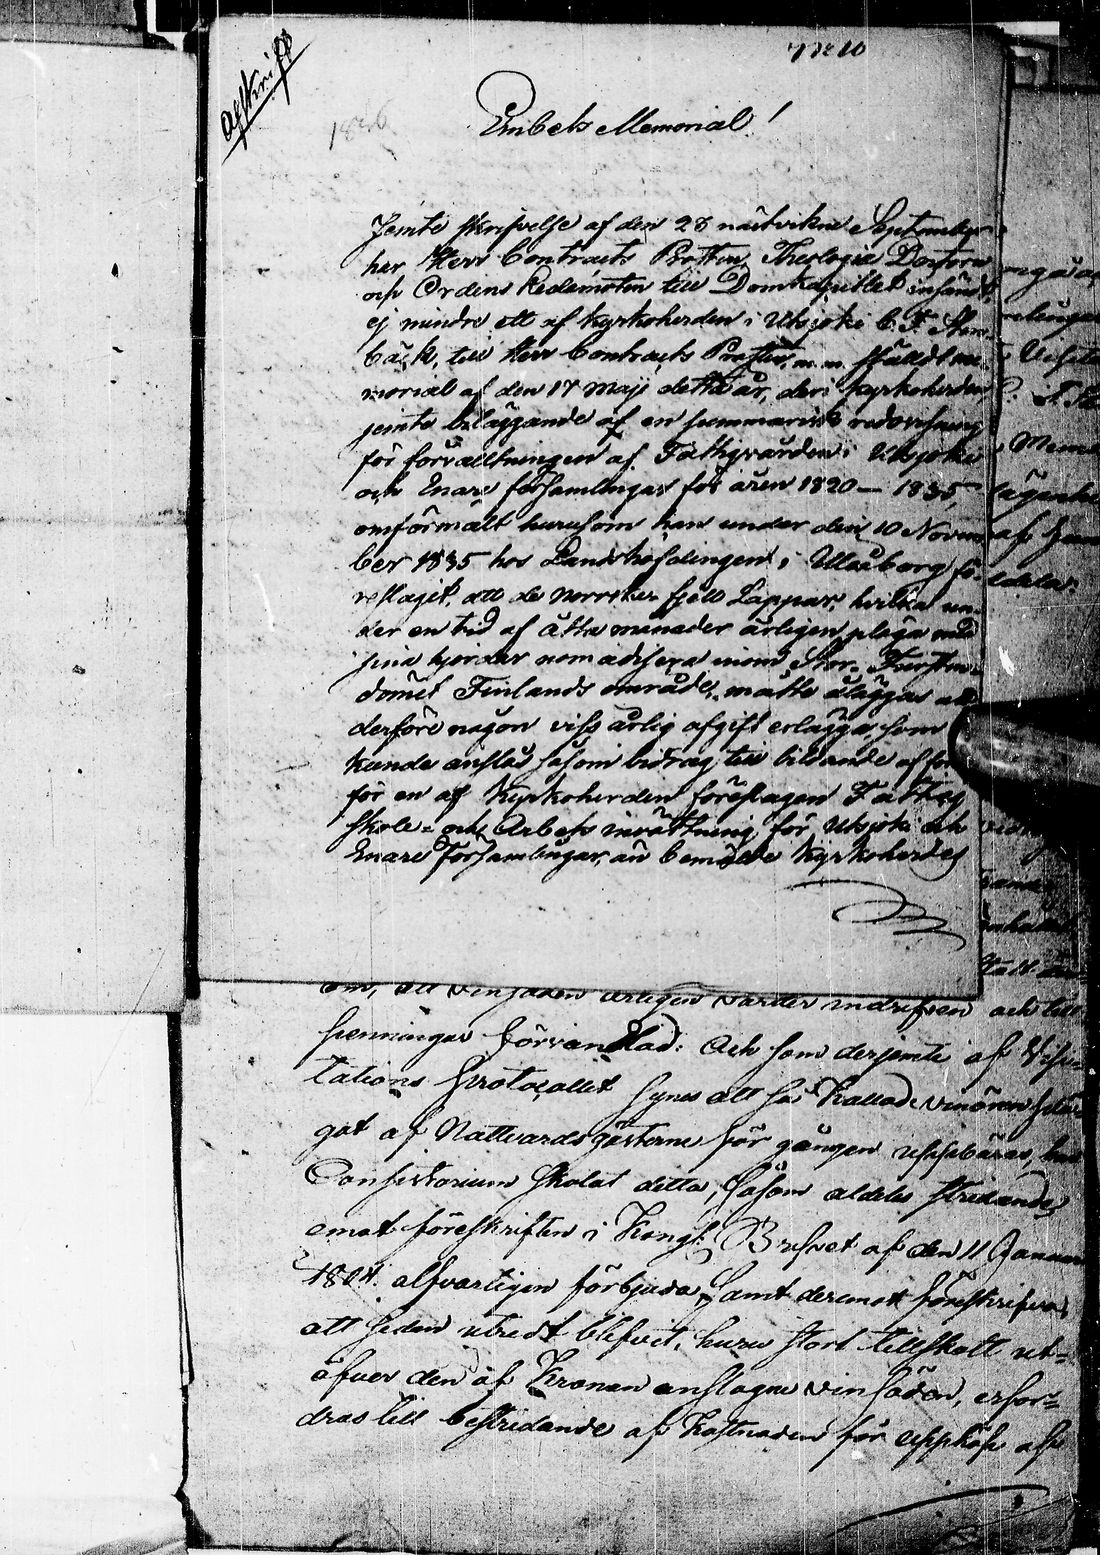 Afskrift
N:o 10
1836
Embets Memorial!
Jemte skrifvelse af den 28 nästvikne September
har Herr Contracts Prosten, Theologiæ Doctorn
och Ordens Ledamoten till Domkapitlet insändt,
ej mindre ett af Kyrkoherden i Utsjoki C. F. Sten-
bäck, till Herr Contracts Prosten m.m. stäldt me-
morial af den 17 Maji detta år, deri Kyrkoherden
jemte biläggande af en summarisk redovisning
för förvaltningen af Fattigvården i Utsjoki
och Enare församlingar för åren 1820 – 1835,
omförmält hurusom han under den 10 Novem-
ber 1835 hos Landshöfdingen i Uleåborg fö-
reslagit, att de Norrska fjell Lappar, hvilka un-
der en tid af åtta månader årligen plaga med
sina hjordar nomadisera inom Stor-Fursten-
dömet Finlands område, måtte åläggas att
derföre någon viss årlig afgift erlägga, som
kunde anslås såsom bidrag till bildande af fon
för en af Kyrkoherden föreslagen Fattig
Skole- och Arbets inrättning för Utsjoki och
Enare Församlingar, än bemälde Kyrkoherdes
om, att vinsäden årligen varder indrifven och till
penningar förvandlad: Och som derjemte af Visi-
tations Protocollet synes att så kallade vinören plä-
gat af Nattvardsgästerne för gången uppbäras, har
Consistorium skolat detta, såsom aldeles stridande
emot föreskriften i Kongl. Brefvet af den 11 Januari
1804. alfvarligen förbjuda, samt deremot föreskrifva,
att sedan utredt blifvit, huru stort tillskott ut-
öfver den af Kronan anslagne vinsäden, erfor-
dras till bestridande af Kostnaden för uppköp af